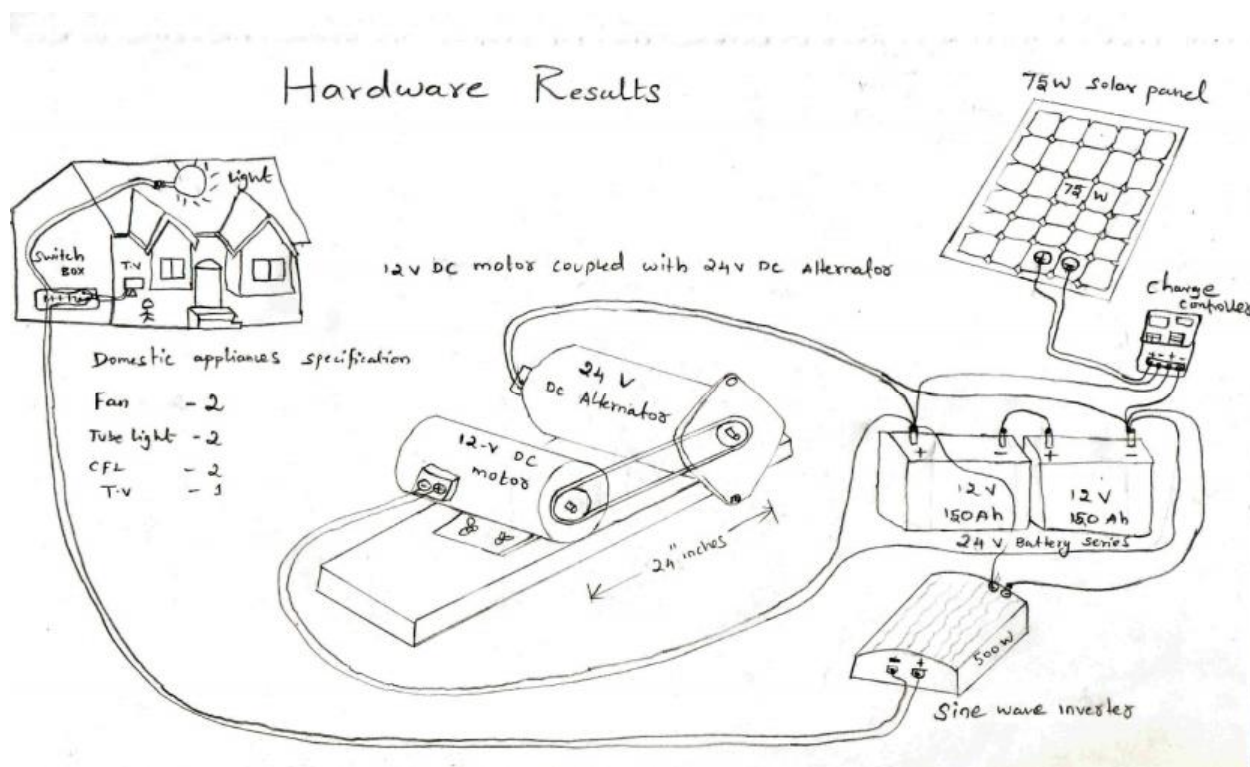 Hardware Results
75W solar panel
75 W
Light
Switch
Box
T.V
12V DC motor coupled with 24V DC Alternator
charge
controller
+ - + -
Domestic appliances specification
Fan - 2
Tube light - 2
CFL - 2
T.V - 1
24 V
DC Alternator
12-V DC
motor
- +
24" inches
+ - + -
12V
150Ah
12V
150 Ah
24 V Battery series
500W
- +
Sine wave inverter